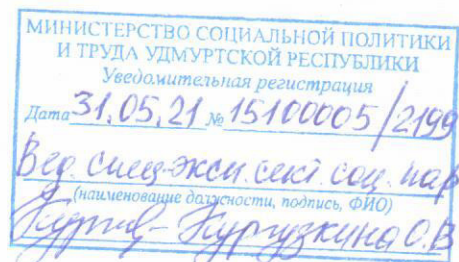 МИНИСТЕРСТВО СОЦИАЛЬНОЙ ПОЛИТИКИ
И ТРУДА УДМУРТСКОЙ РЕСПУБЛИКИ
Уведомительная регистрация
Дата 31.05.21 № 15100005/2199
Вед. спец-эксп. сект. соц. пар
(наименование должности, подпись, ФИО)
О.В